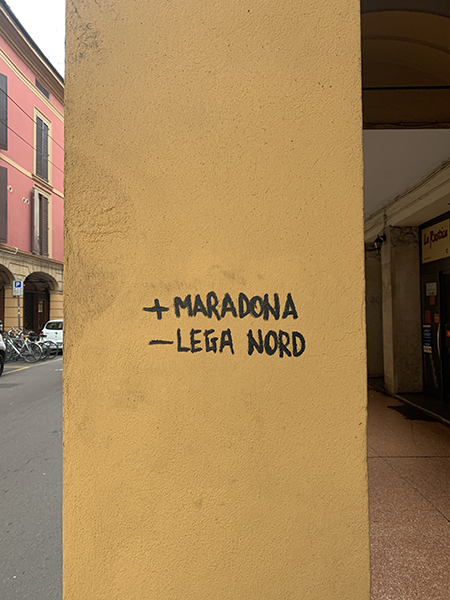 + MARADONA
- LEGA NORD
La Rustica
P